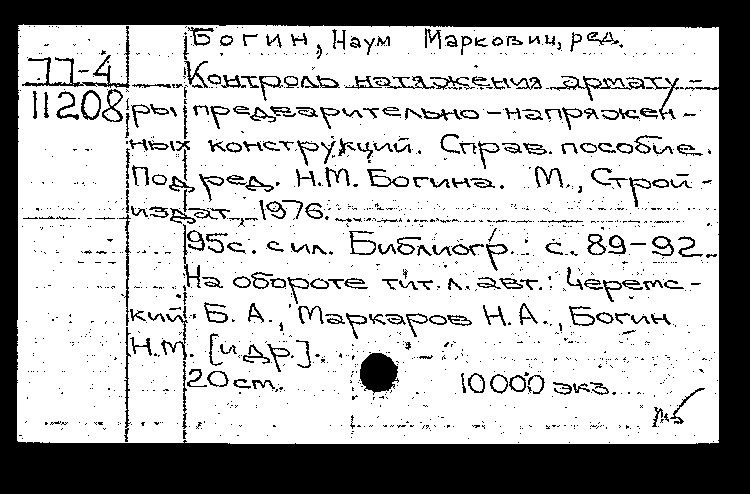 Богин, Наум Маркович, ред.
77-4
Контроль натяжения армату-
11208
ры предварительно-напряжен-
ных конструкций. Справ. пособие.
Под ред. Н.М. Богина. М., Строй-
издат, 1976.
95с. с ил. Библиогр.: с. 89-92.
На обороте тит. л. авт.: Черемс-
кий Б. А., Маркаров Н.А., Богин
Н.М. [и др.].
20 см.
10000 экз.